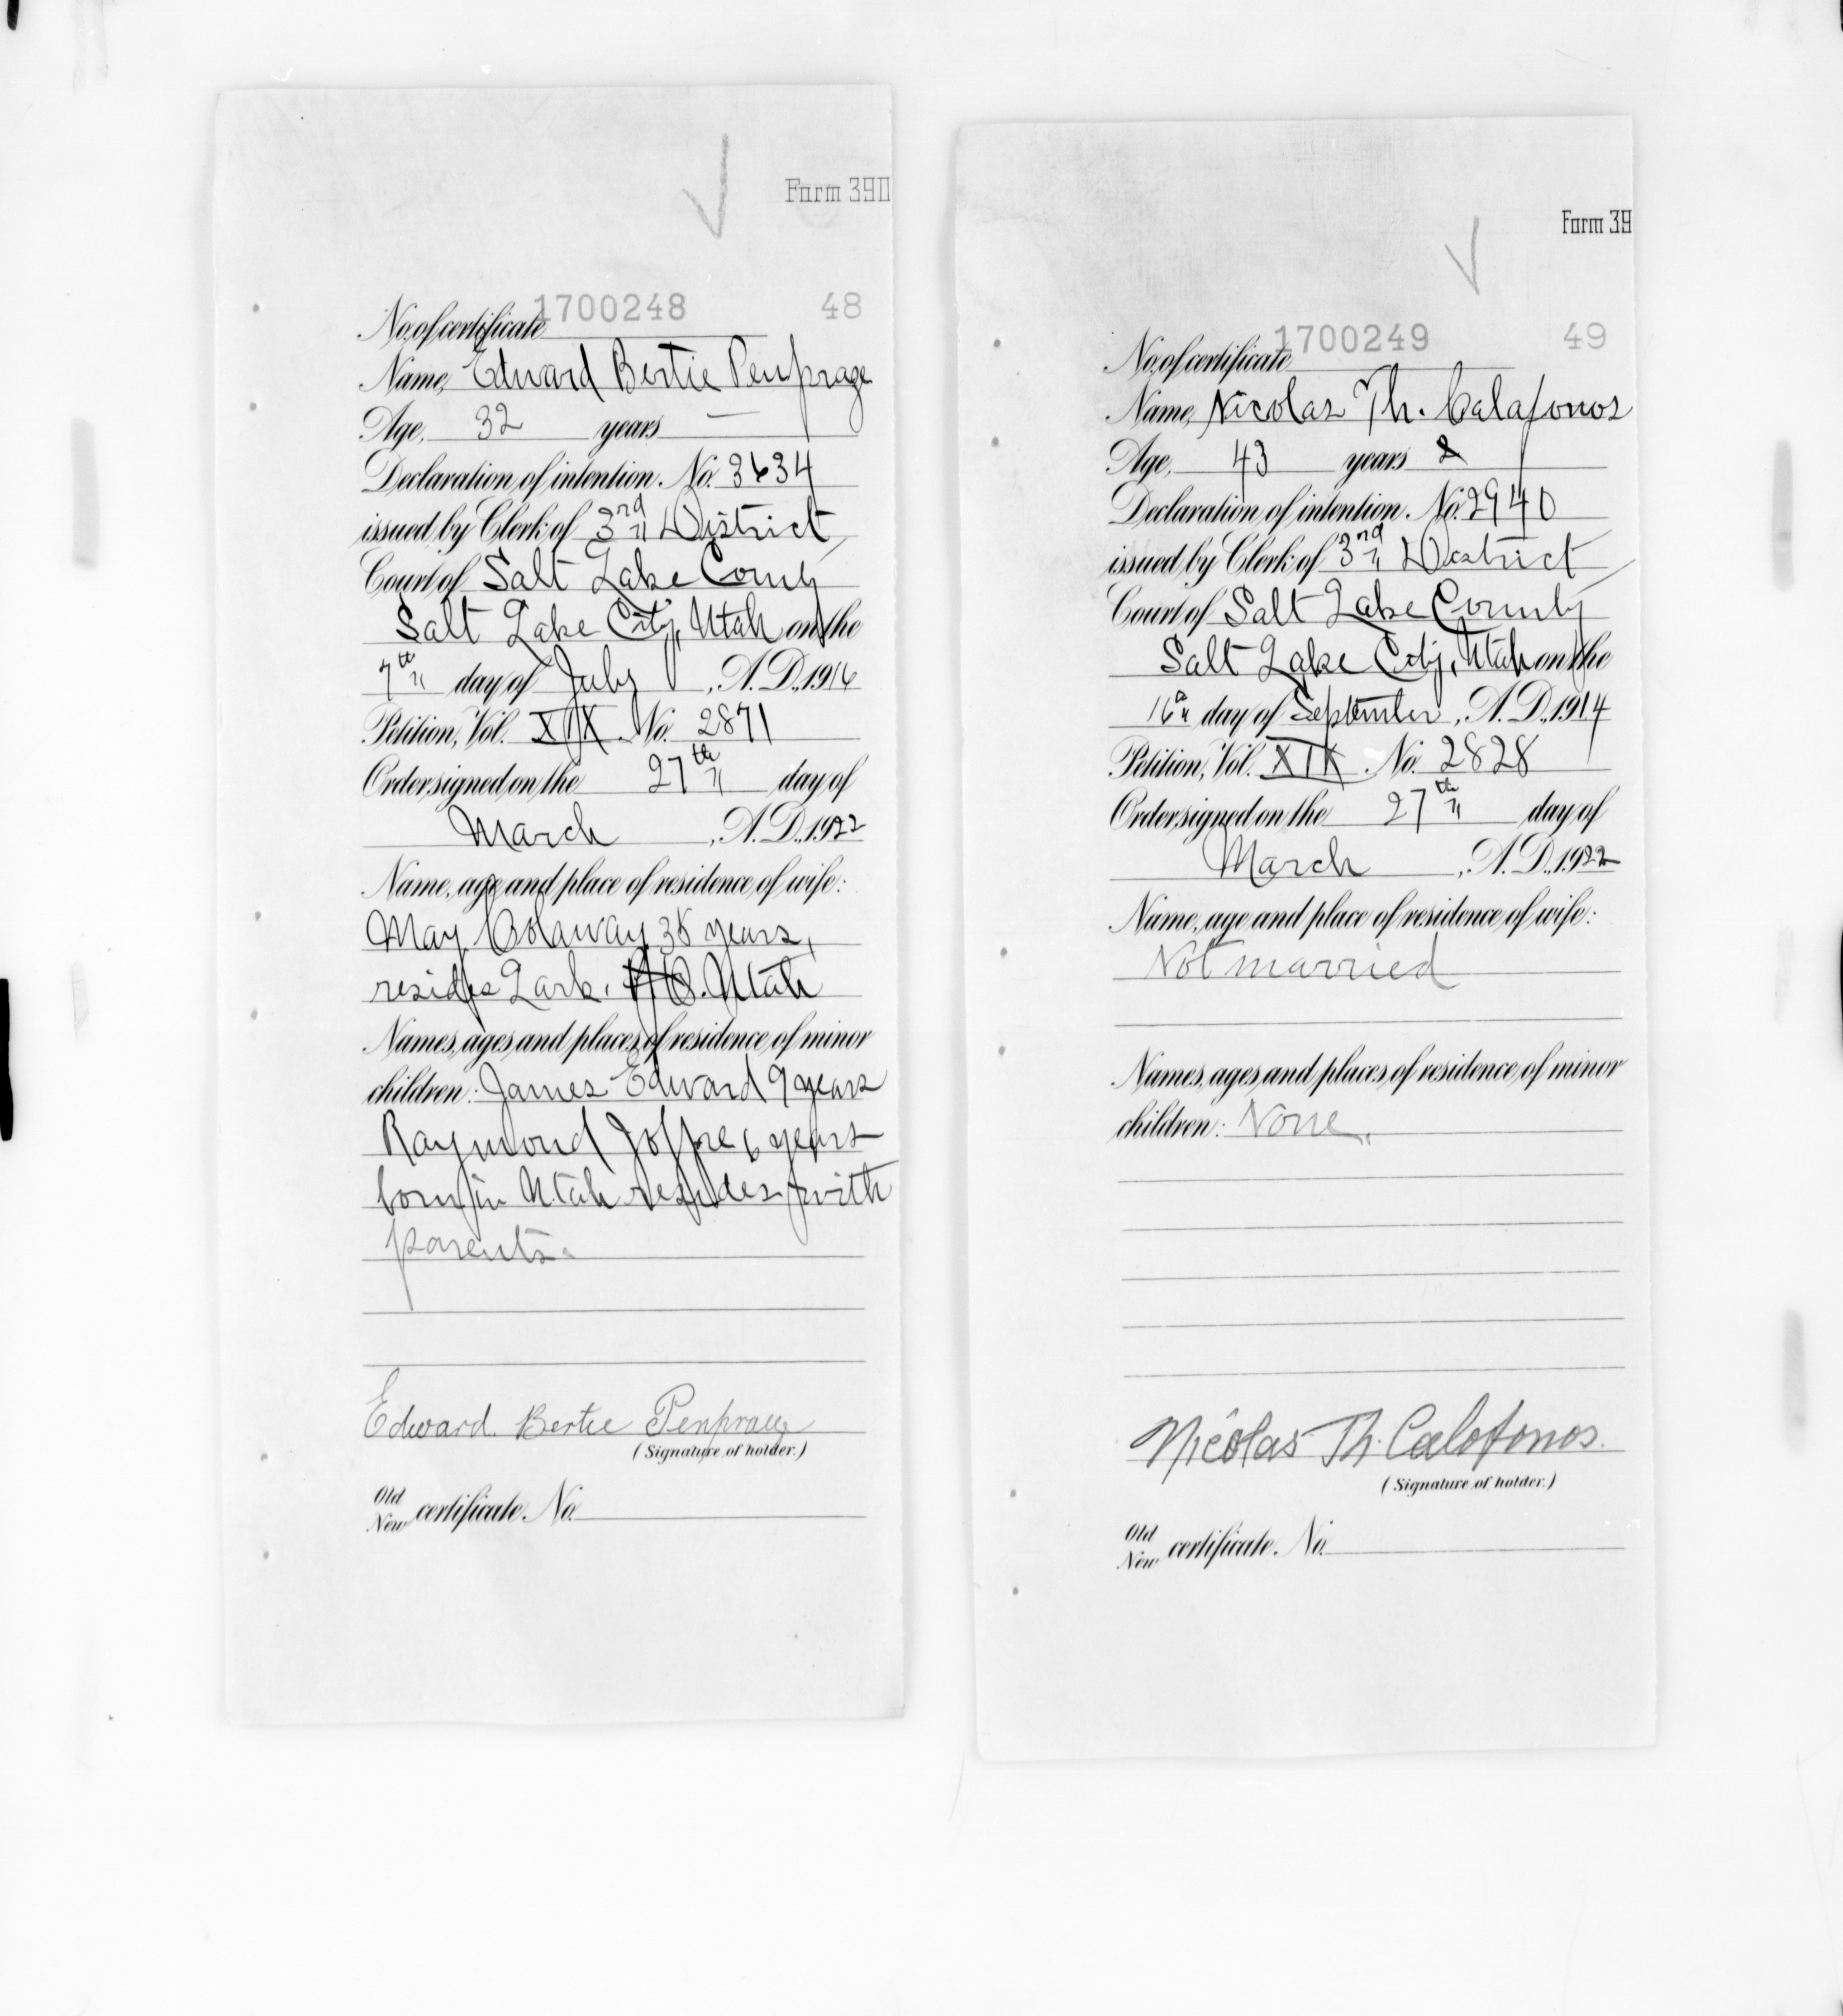 Form 390
1700248 48
No. of certificate
Name, Edward Bertie Penprage
Age, 32 years —
Declaration of intention, No. 3634
issued by Clerk of 3rd District
Court of Salt Lake County
Salt Lake City, Utah on the
7th day of July, A.D., 1916
Petition, Vol. XIX No. 2871
Order signed on the 27th day of
March, A.D., 1922
Name, age and place of residence of wife:
May 38 years,
resides Lark, Utah
Names, ages and places of residence of minor
children: James Edward 9 years
Raymond Joffre 6 years
born in Utah resides with
parents.
Edward Bertie Penprage
(Signature of holder.)
Old
New certificate, No.
Form 39
1700249 49
No. of certificate
Name, Nicolas Th. Calafonos
Age, 43 years
Declaration of intention, No. 2940
issued by Clerk of 3rd District
Court of Salt Lake County
Salt Lake City, Utah on the
16th day of September, A.D., 1914
Petition, Vol. XIX No. 2828
Order signed on the 27th day of
March, A.D., 1922
Name, age and place of residence of wife:
Not married
Names, ages and places of residence of minor
children: None.
Nicolas Th. Calofonos.
(Signature of holder.)
Old
New certificate, No.